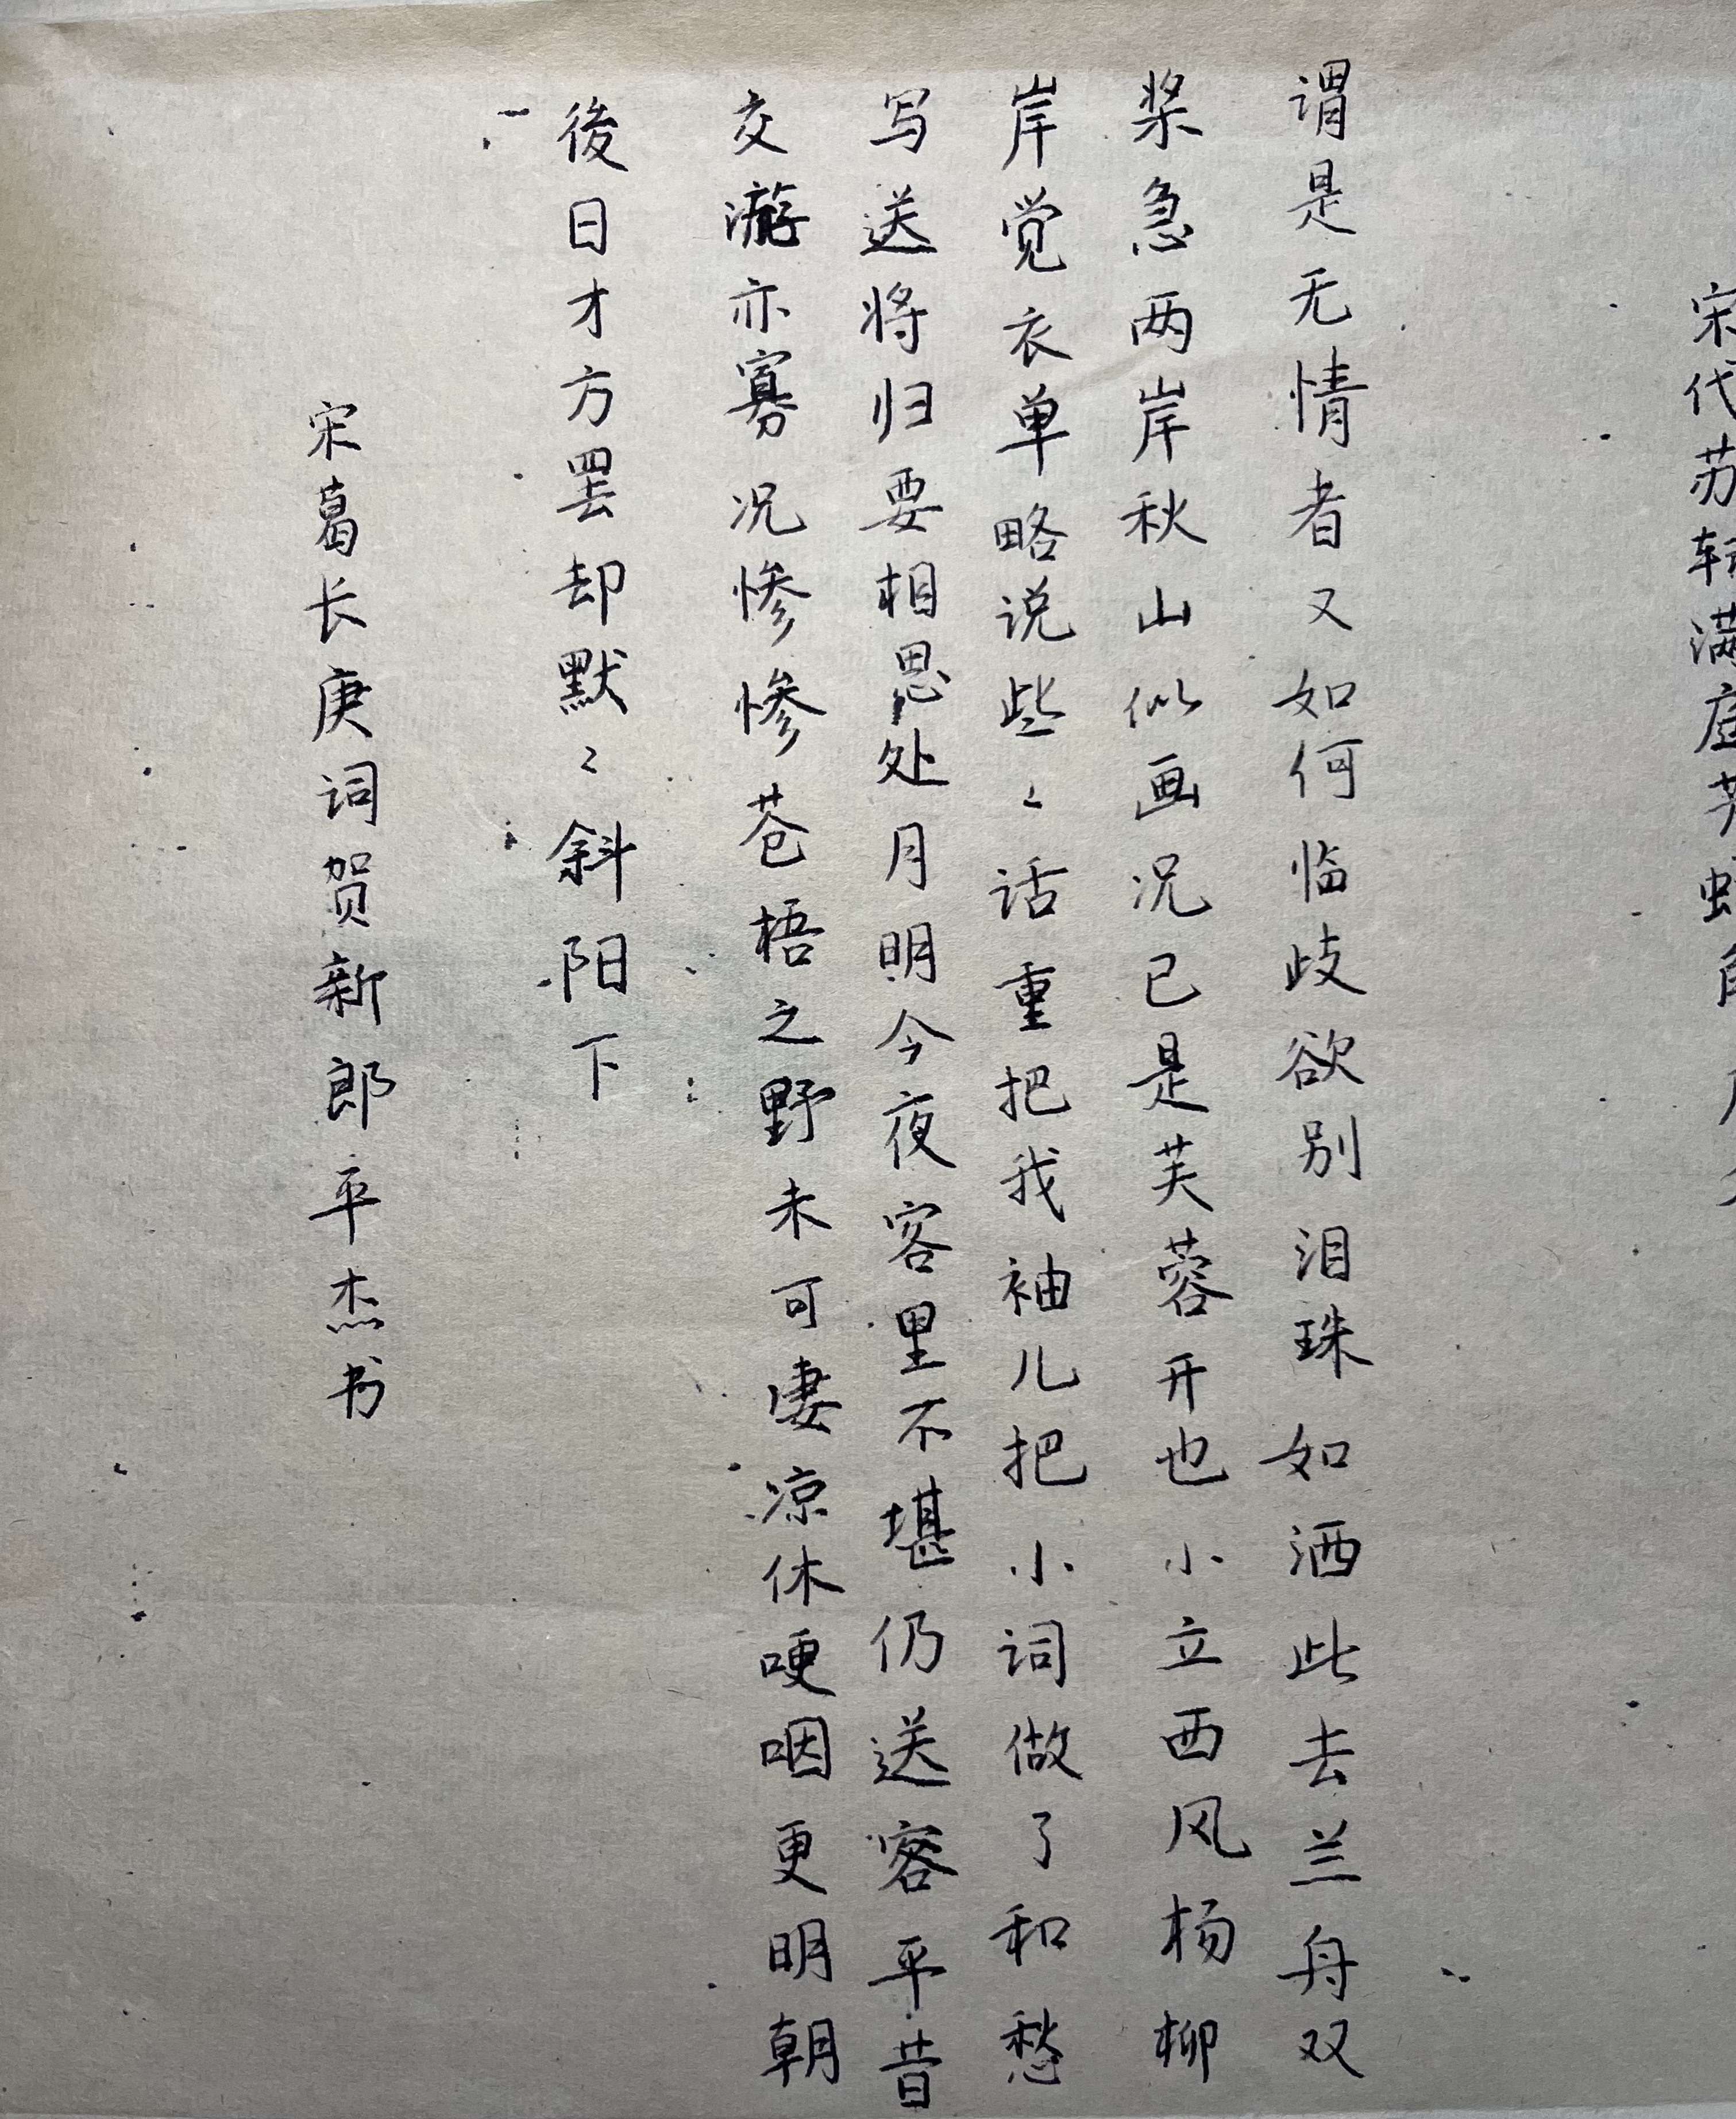 宋代苏轼满庭芳蜗角
谓是无情者又如何临歧欲别泪珠如洒此去兰舟双
桨急两岸秋山似画况已是芙蓉开也小立西风杨柳
岸觉衣单略说些〻话重把我袖儿把小词做了和愁
写送将归要相思处月明今夜客里不堪仍送客平昔
交游亦寡况惨惨苍梧之野未可凄凉休哽咽更明朝
後日才方罢却默〻斜阳下
宋葛长庚词贺新郎平杰书